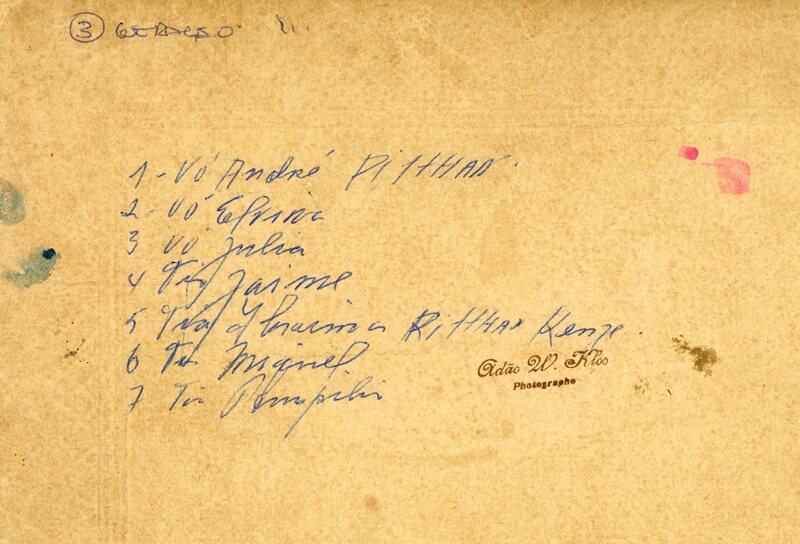 3
1 - Vó André PITHAN.
2 - Vó Elvina
3 Vó Julia
4 Tio Jaime
5 Tia PITHAN
6 Tio Miguel
7 Tio Pompilio
Adão W. Kloo
Photographo